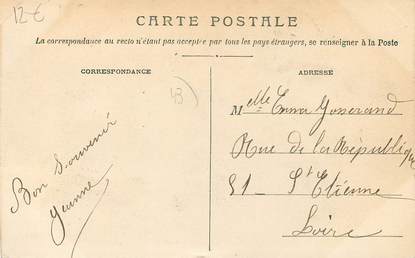 12€
CARTE POSTALE
La correspondance au recto n'étant pas acceptée par tous les pays étrangers, se renseigner à la Poste
CORRESPONDANCE
ADRESSE
Bon Souvenir
Melle Emma Josserand
Rue de la République
51 - St Etienne
Loire